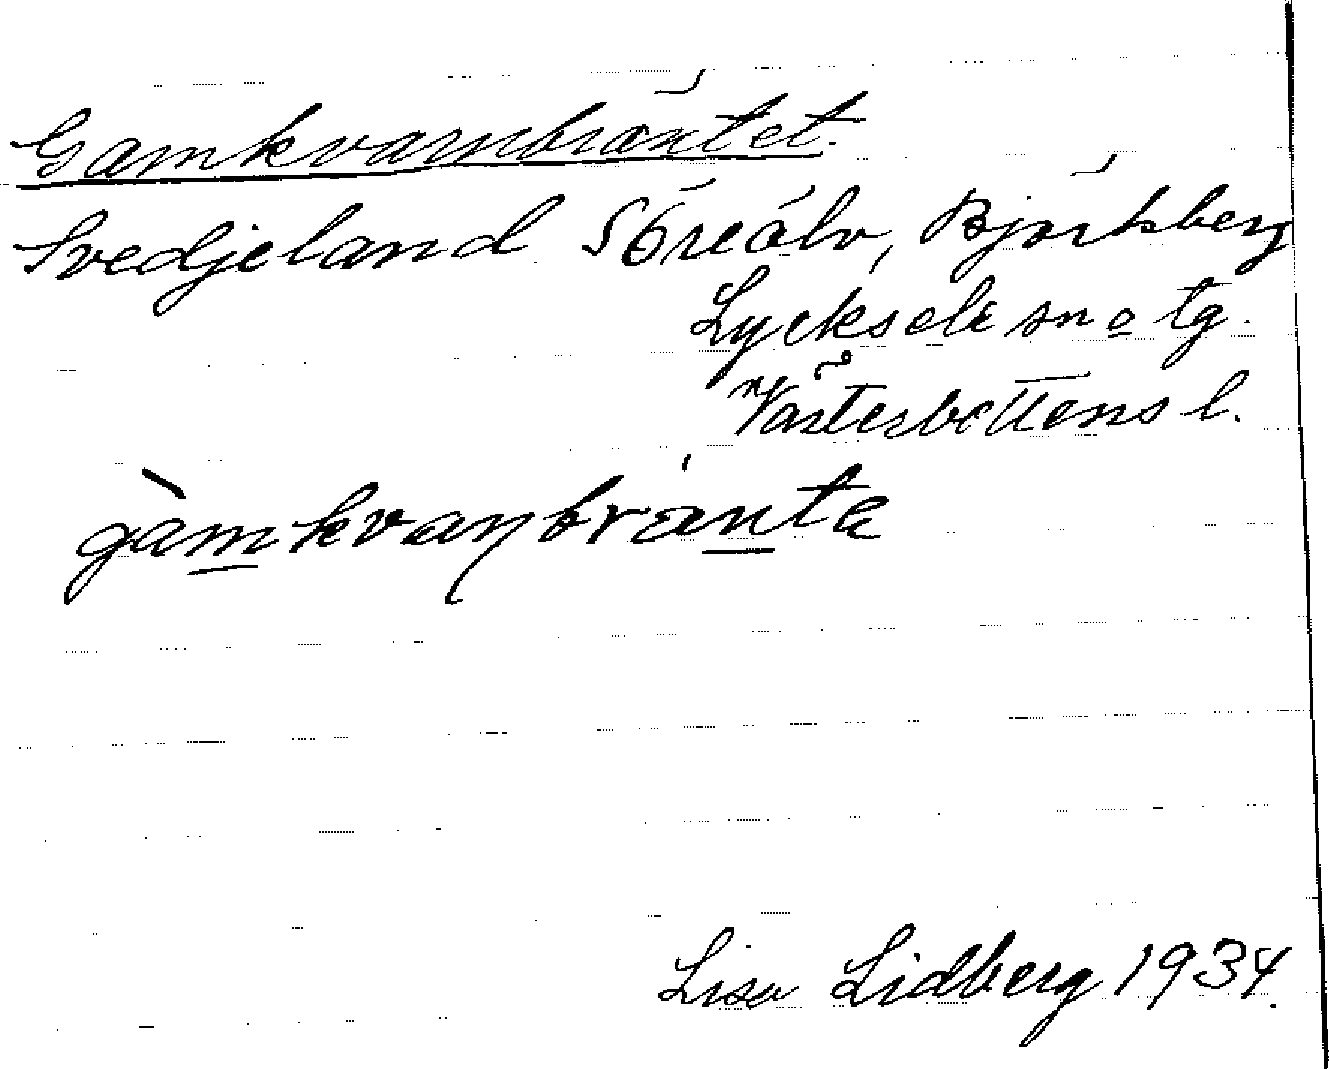 Gamkvarnbräntet.
Svedjeland S Öreälv, Björkberg
Lycksele sn o tg.
Västerbottens l.
gàmkvaɳbränta
Lisa Lidberg 1934.